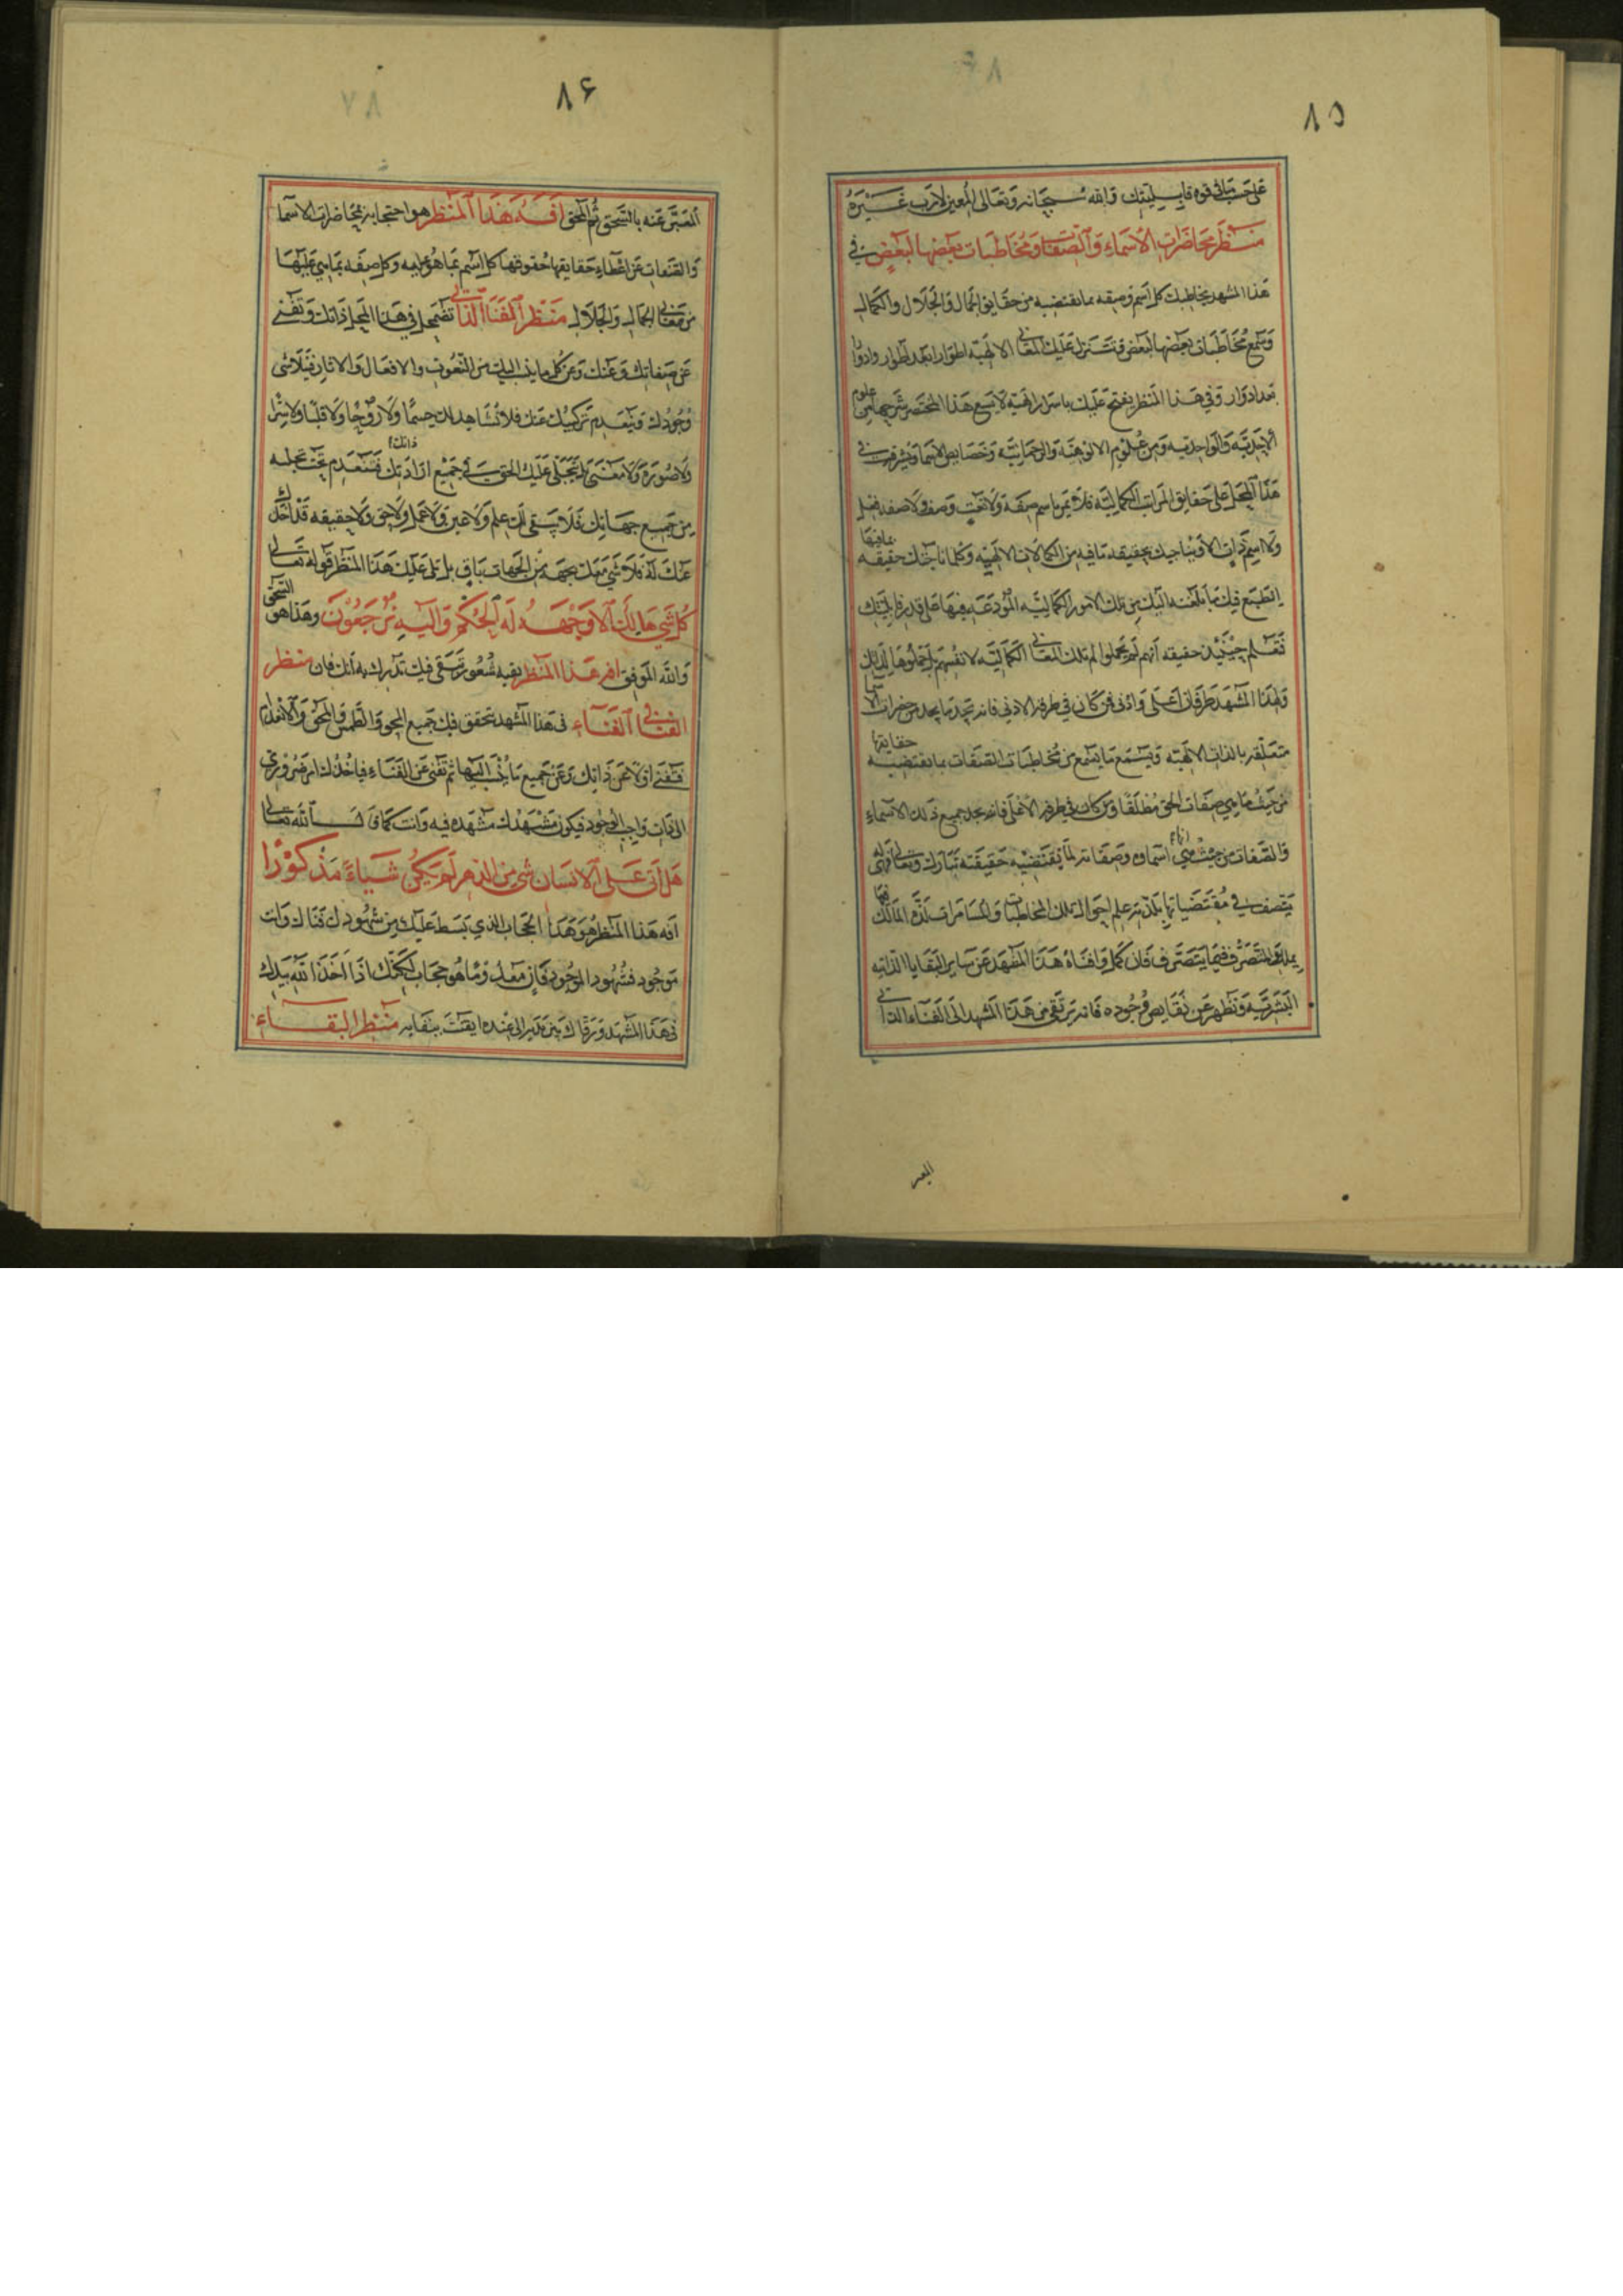 ٨٥
على حسب ما في قوة قابليتك والله سبحانه وتعالى المعين لا رب غيره
منظر محاضرات الأسماء والصفات ومخاطبات بعضها لبعض في
هذا المشهد يخاطبك كل اسم وصفه بما يقتضيه من حقايق الجمال والجلال والكمال
وتسمع مخاطبات بعضها لبعض فتتنزل عليك المعاني الالهية اطوارا بعد اطوار وادوارا
بعد ادوار وفي هذا المنظر يفتح عليك باسرار الهية لا يسع هذا المختصر شرحها من علوم
الاحدية والواحدية ومن علوم الالوهية والرحمانية وخصايص الاسما وتشرف في
هذا المجلى على حقايق المراتب الكمالية فلا تمر باسم صفة ولا نعت وصف ولا صفة فعل
ولا اسم ذات الا ويناجيك بحقيقة ما فيه من الكمالات الالهية وكلما ناجتك حقيقة بما فيها
انطبع فيك ما بلغته اليك من تلك الامور الكمالية المودعة فيها على قدر قابليتك
فتعلم حينيذ حقيقة انهم لم يحملوا لم تلك المعاني الكمالية لانفسهم بل حملوها لذاتك
ولهذا المشهد طرفان اعلى وادنى فمن كان في طرفه الادنى فانه يجد ما يجد من حضرات الاسما
متعلقه بالذات الالهية ويسمع ما يسمع من مخاطبات الصفات بما تقتضيه حقايقها
من حيث ما هي صفات الحق مطلقا ومن كان في طرفه الاعلى فانه يجد جميع ذلك الاسماء
والصفات من حيث هي انها اسماوه وصفاته لما يقتضيه حقيقته تبارك وتعالى فهو له
يتصف في مقتضياتها يلذ به علم احوال تلك المخاطبات والمسامرات لذة المالك فيما
يملك والمتصرف فيما يتصرف فان كمل وافناه هذا المشهد عن ساير البقايا الذاتيه
البشرية وتطهر عن نقايص وجوده فانه يرتقي من هذا المشهد الى الفناء الذاتي
المعبر
٨۶
المعبر عنه بالسحق ثم المحق افة هذا المنظر هو احتجابه بمحاضرات الاسما
والصفات عن اعطاء حقايقها حقوقها كل اسم بما هو عليه وكل صفه بما هي عليها
من معاني الجمال والجلال منظر الفناء الذاتي تضمحل في هذا المجلى ذاتك وتفنى
عن صفاتك وعنك وعن كل ما ينسب اليك من النعوت والافعال والاثار فيتلاشى
وجودك وينعدم تركيبك عنك فلا تشاهد لك جسما ولا روحا ولا قلبا ولا سرا
ولا صورة ولا معنى بل يتجلى عليك الحق في جميع ذاتك فتنعدم تحت تجليه
من جميع جهاتك فلا يبقى لك علم ولا عين ولا عمل ولا حق ولا حقيقه قد اخذك
عنك له فلا شي معك بجهة من الجهات باق بل تلى عليك هذا المنظر قوله تعالى
كل شي هالك الا وجهه له الحكم واليه ترجعون وهذا هو السحق
والله الموفق افه هذا المنظر بقية شعور تبقى فيك تدرك به انك فان منظر
الفناء الفناء في هذا المشهد يتحقق فيك جميع المحو والطمس والمحق والانعدام
فتفنى اولا عن ذاتك وعن جميع ما نسب اليها ثم تفنى عن الفناء فياخذك امر ضروري
الى ذات واجب الوجود فيكون مشهدك مشهده فيه وانت كما قال الله تعالى
هل اتى على الانسان شي من الدهر لم يكن شياء مذكورا
افه هذا المنظر هو هذا الحجاب الذي بسط عليك من شهودك فناك وانت
موجود فشهود الموجود فان معدوم ما هو حجاب لكنك اذا اخذ الله بيدك
في هذا المشهد ورقاك بتدبير الى عنده ابقيت ببقايه منظر البقاء